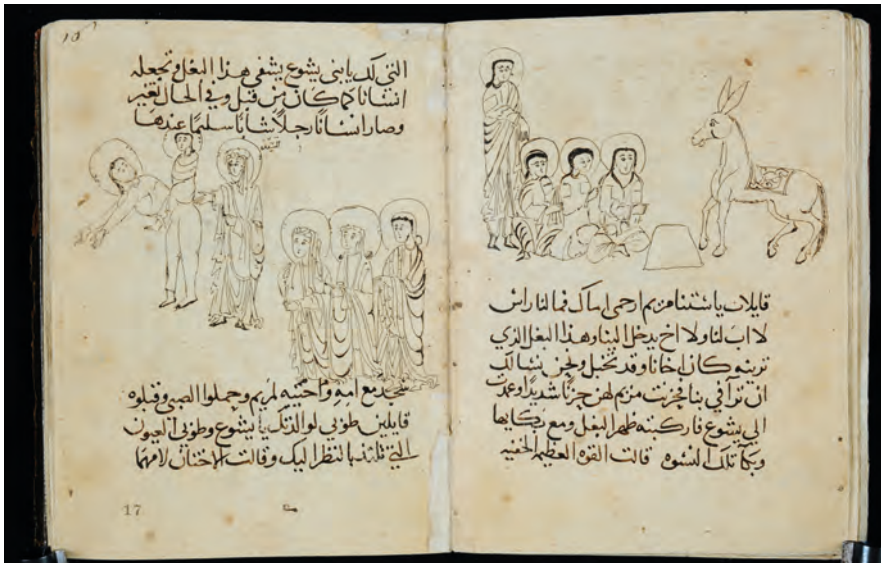 قايلات ياستنا مريم ارحمى اماك فما لنا راس
لا اب لنا ولا اخ يدخل الينا وهذا البغل الذي
ترينه كان اخانا وقد تخبل ونحن نسالك
ان ترافي بنا فحزنت مريم لهن حزنًا شديدًا
الي يشوع فاركبته ظهر البغل ومع
وبكا تلك النسوه قالت القوه العظيمه الخفيه
التي لك يابنى يشوع يشفى هذا البغل وتجعله
انسانا كما كان من قبل وفي الحال تغير
وصار انسانًا رجلًا شابًا سليمًا عندها
سجد مع امه واختيه لمريم وحملوا الصبى وقبلوه
قايلين طوبى لوالدتك يا يشوع وطوبى العيون
التي تلتذ بالنظر اليك وقالت الاختان لامهما
17